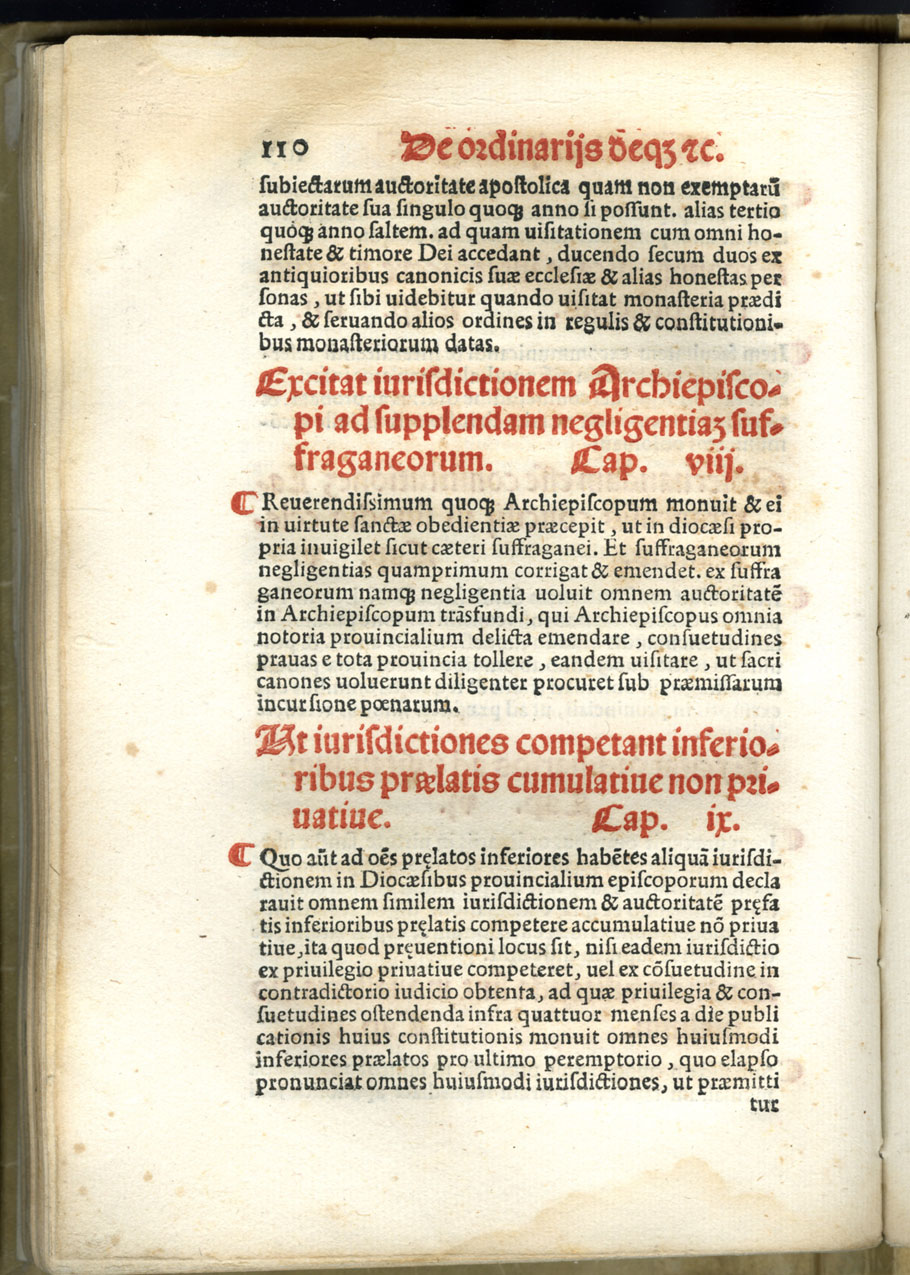 110 De ordinarijs deqꝫ ⁊c.
ſubiectarum auctoritate apoſtolica quam non exemptarū
auctoritate ſua ſingulo quoqꝫ anno ſi poſſunt. alias tertio
quoqꝫ anno ſaltem. ad quam uiſitationem cum omni ho-
neſtate & timore Dei accedant, ducendo ſecum duos ex
antiquioribus canonicis ſuæ eccleſiæ & alias honeſtas per
ſonas, ut ſibi uidebitur quando uiſitat monaſteria prædi
cta, & ſeruando alios ordines in regulis & conſtitutioni-
bus monaſteriorum datas.
Excitat iuriſdictionem Archiepiſco-
pi ad ſupplendam negligentiaꝫ ſuf-
fraganeorum. Cap. viij.
¶ Reuerendiſsimum quoqꝫ Archiepiſcopum monuit & ei
in uirtute ſanctæ obedientiæ præcepit, ut in diocæſi pro-
pria inuigilet ſicut cæteri ſuffraganei. Et ſuffraganeorum
negligentias quamprimum corrigat & emendet. ex ſuffra
ganeorum namqꝫ negligentia uoluit omnem auctoritatē
in Archiepiſcopum trāsfundi, qui Archiepiſcopus omnia
notoria prouincialium delicta emendare, conſuetudines
prauas e tota prouincia tollere, eandem uiſitare, ut ſacri
canones uoluerunt diligenter procuret ſub præmiſſarum
incurſione pœnarum.
Ut iuriſdictiones competant inferio-
ribus prælatis cumulatiue non pri-
uatiue. Cap. ix.
¶ Quo aūt ad oēs pręlatos inferiores habētes aliquā iuriſdi-
ctionem in Diocæſibus prouincialium epiſcoporum decla
rauit omnem ſimilem iuriſdictionem & auctoritatē pręfa
tis inferioribus pręlatis competere accumulatiue nō priua
tiue, ita quod pręuentioni locus ſit, niſi eadem iuriſdictio
ex priuilegio priuatiue competeret, uel ex cōſuetudine in
contradictorio iudicio obtenta, ad quæ priuilegia & con-
ſuetudines oſtendenda infra quattuor menſes a die publi
cationis huius conſtitutionis monuit omnes huiuſmodi
inferiores prælatos pro ultimo peremptorio, quo elapſo
pronunciat omnes huiuſmodi iuriſdictiones, ut præmitti
tur